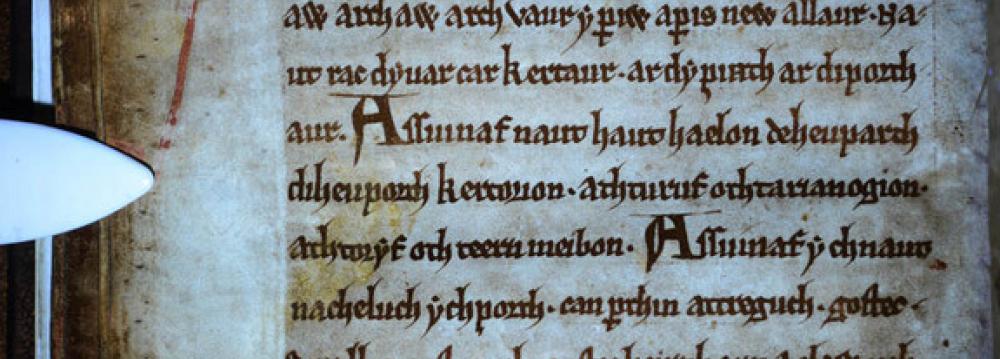 aỽ arth aỽ arth vaur ẏ piỽ apis neỽ allaur. Na
ut rac dyuar car kertaur. ar dy pirth ar diporth
aur. Assuinaf naut haut haelon deheuparch
diheuporth kertorion. ath turuf oth tarianogion.
ath toryf oth teern meibon. Assuinaf ẏ ch naut
nacheluch ẏch porth. can perthin attreguch. gostec